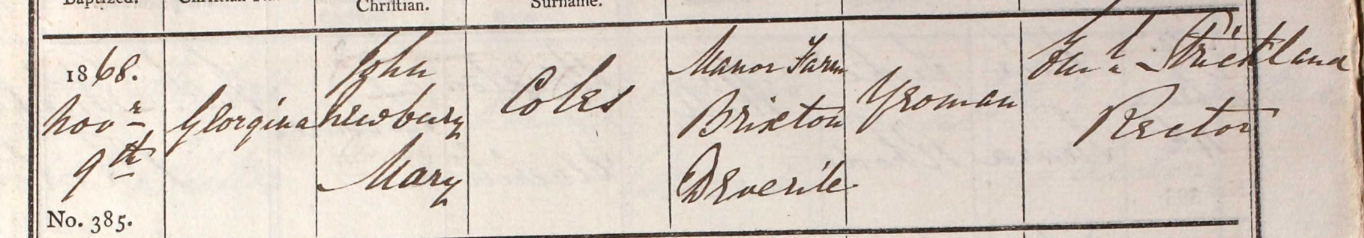 Baptized.
Christian.
Surname.
1868.
Novr
9th
No. 385.
Georgina
John
Newbury
Mary
Coles
Manor Farm
Brixton
Deverile
Yeoman
Strickland
Rector